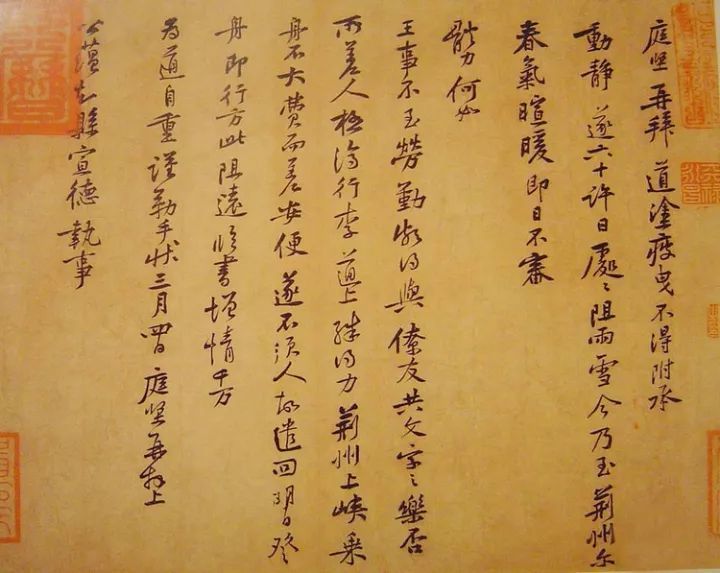 庭堅再拜 道塗疲曳 不得附承
動靜 遂六十許日 處〻阻雨雪 今乃至荊州尔
春氣暄暖 即日不審
體力何如
王事不至勞勤 頗得與僚友共文字之樂否
所差人極濟行李 道上殊得力 荊州上峽乗
舟不大費而差安便 遂不須人 故遣回 明日登
舟即行 方此阻遠 臨書增情 千万
為道自重 謹勒手狀 三月四日 庭堅再拜上
知縣宣德執事